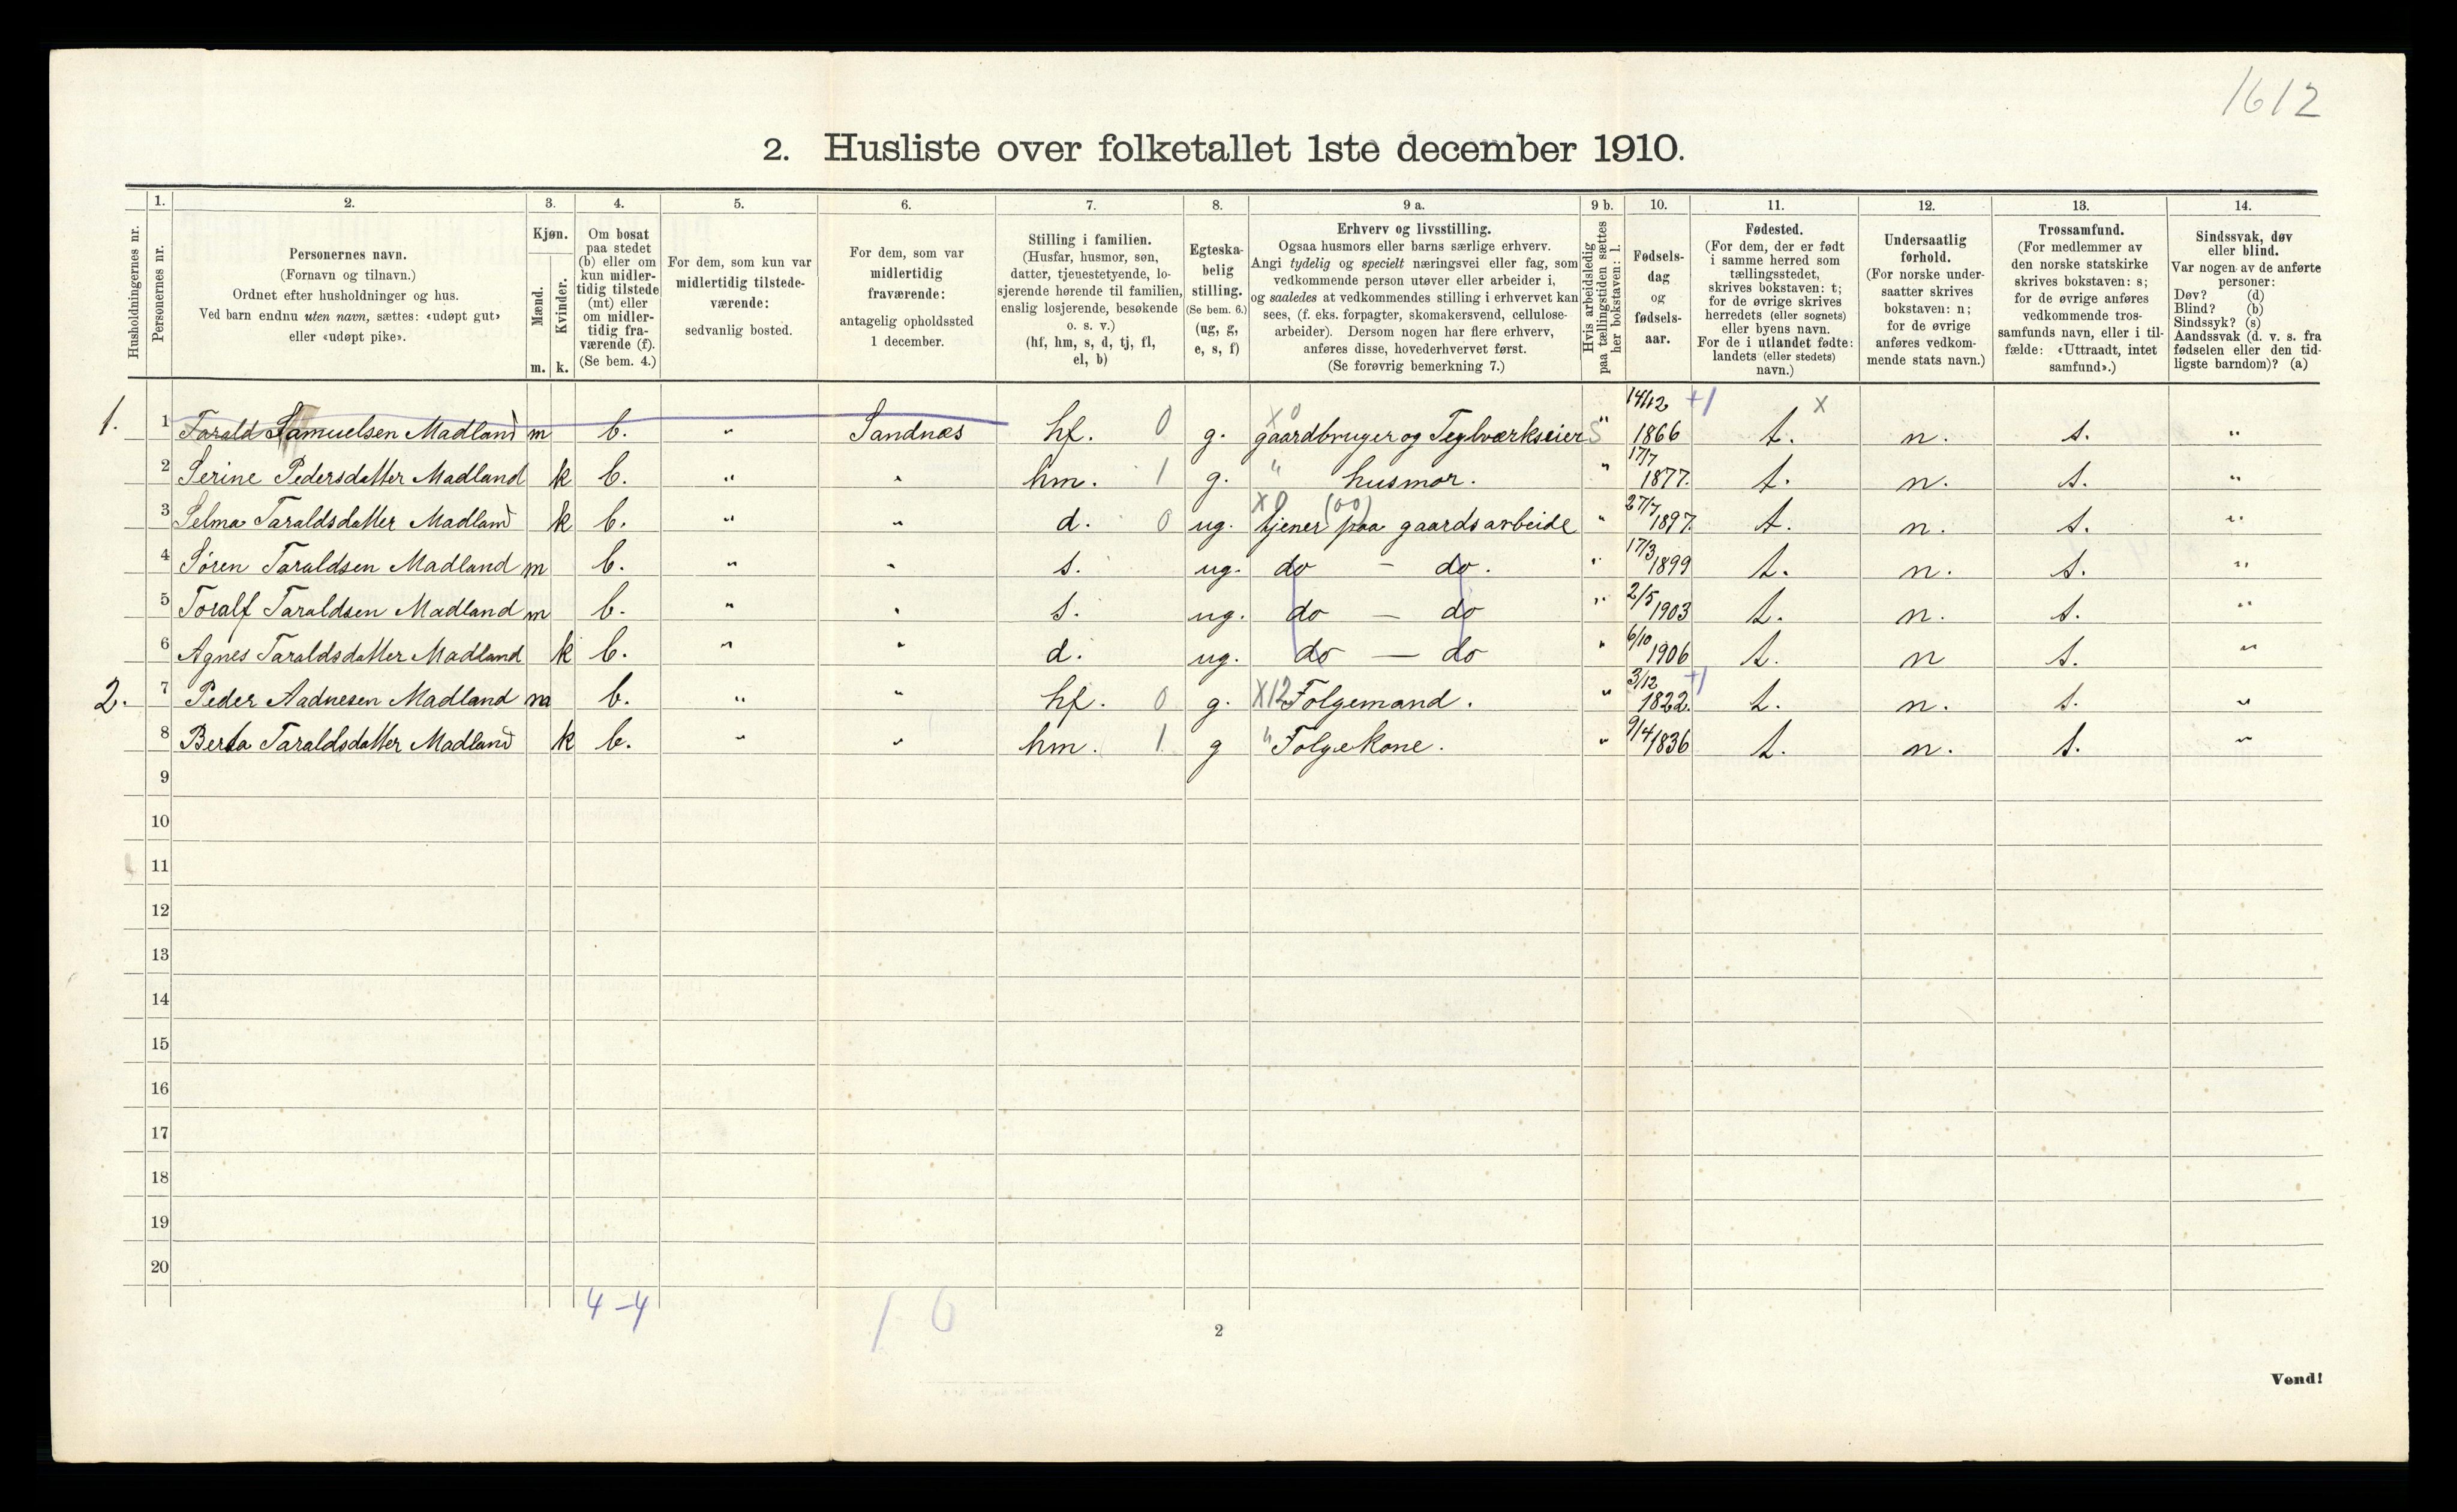 1612
2. Husliste over folketallet 1ste december 1910.
Husholdningernes nr.
1. Personernes nr.
2. Personernes navn.
(Fornavn og tilnavn.)
Ordnet efter husholdninger og hus.
Ved barn endnu uten navn, sættes: «udøpt gut»
eller «udøpt pike».
3. Kjøn.
Mænd. Kvinder.
m. k.
4. Om bosat
paa stedet
(b) eller om
kun midler-
tidig tilstede
(mt) eller
om midler-
tidig fra-
værende (f).
(Se bem. 4.)
5. For dem, som kun var
midlertidig tilstede-
værende:
sedvanlig bosted.
6. For dem, som var
midlertidig
fraværende:
antagelig opholdssted
1 december.
7. Stilling i familien.
(Husfar, husmor, søn,
datter, tjenestetyende, lo-
sjerende hørende til familien,
enslig losjerende, besøkende
o. s. v.)
(hf, hm, s, d, tj, fl,
el, b)
8. Egteska-
belig
stilling.
(Se bem. 6.)
(ug, g,
e, s, f)
9 a. Erhverv og livsstilling.
Ogsaa husmors eller barns særlige erhverv.
Angi tydelig og specielt næringsvei eller fag, som
vedkommende person utøver eller arbeider i,
og saaledes at vedkommendes stilling i erhvervet kan
sees, (f. eks. forpagter, skomakersvend, cellulose-
arbeider). Dersom nogen har flere erhverv,
anføres disse, hovederhvervet først.
(Se forøvrig bemerkning 7.)
9 b. Hvis arbeidsledig
paa tællingstiden sættes
her bokstaven: l.
10. Fødsels-
dag
og
fødsels-
aar.
11. Fødested.
(For dem, der er født
i samme herred som
tællingsstedet,
skrives bokstaven: t;
for de øvrige skrives
herredets (eller sognets)
eller byens navn.
For de i utlandet fødte:
landets (eller stedets)
navn.)
12. Undersaatlig
forhold.
(For norske under-
saatter skrives
bokstaven: n;
for de øvrige
anføres vedkom-
mende stats navn.)
13. Trossamfund.
(For medlemmer av
den norske statskirke
skrives bokstaven: s;
for de øvrige anføres
vedkommende tros-
samfunds navn, eller i til-
fælde: «Uttraadt, intet
samfund».)
14. Sindssvak, døv
eller blind.
Var nogen av de anførte
personer:
Døv? (d)
Blind? (b)
Sindssyk? (s)
Aandssvak (d. v. s. fra
fødselen eller den tid-
ligste barndom)? (a)
1. 1 Tarald Samuelsen Madland m b. " Sandnæs hf. 0 g. X0 gaardbruger og Teglværkseier S " 14/12 1866 +1 t. X n. s. "
2 Serine Pedersdatter Madland k b. " " hm. 1 g. " husmor. " 17/7 1877. t. n. s. "
3 Selma Taraldsdatter Madland k b. " " d. 0 ug. X0 (00) tjener paa gaardsarbeide " 27/7 1897. t. n. s. "
4 Søren Taraldsen Madland m b. " " s. ug. do - do. " 17/3 1899 t. n. s. "
5 Toralf Taraldsen Madland m b. " " s. ug. do - do " 2/5 1903 t. n. s. "
6 Agnes Taraldsdatter Madland k b. " " d. ug. do - do " 6/10 1906 t. n s. "
2. 7 Peder Aadnesen Madland m b. " " hf. 0 g. X12 Folgemand. " 3/12 1822. +1 t. n. s. "
8 Berta Taraldsdatter Madland k b. " " hm. 1 g " Folgekone. " 9/4 1836 t. n. s. "
9
10
11
12
13
14
15
16
17
18
19
20
4-4 1 0
2
Vend!